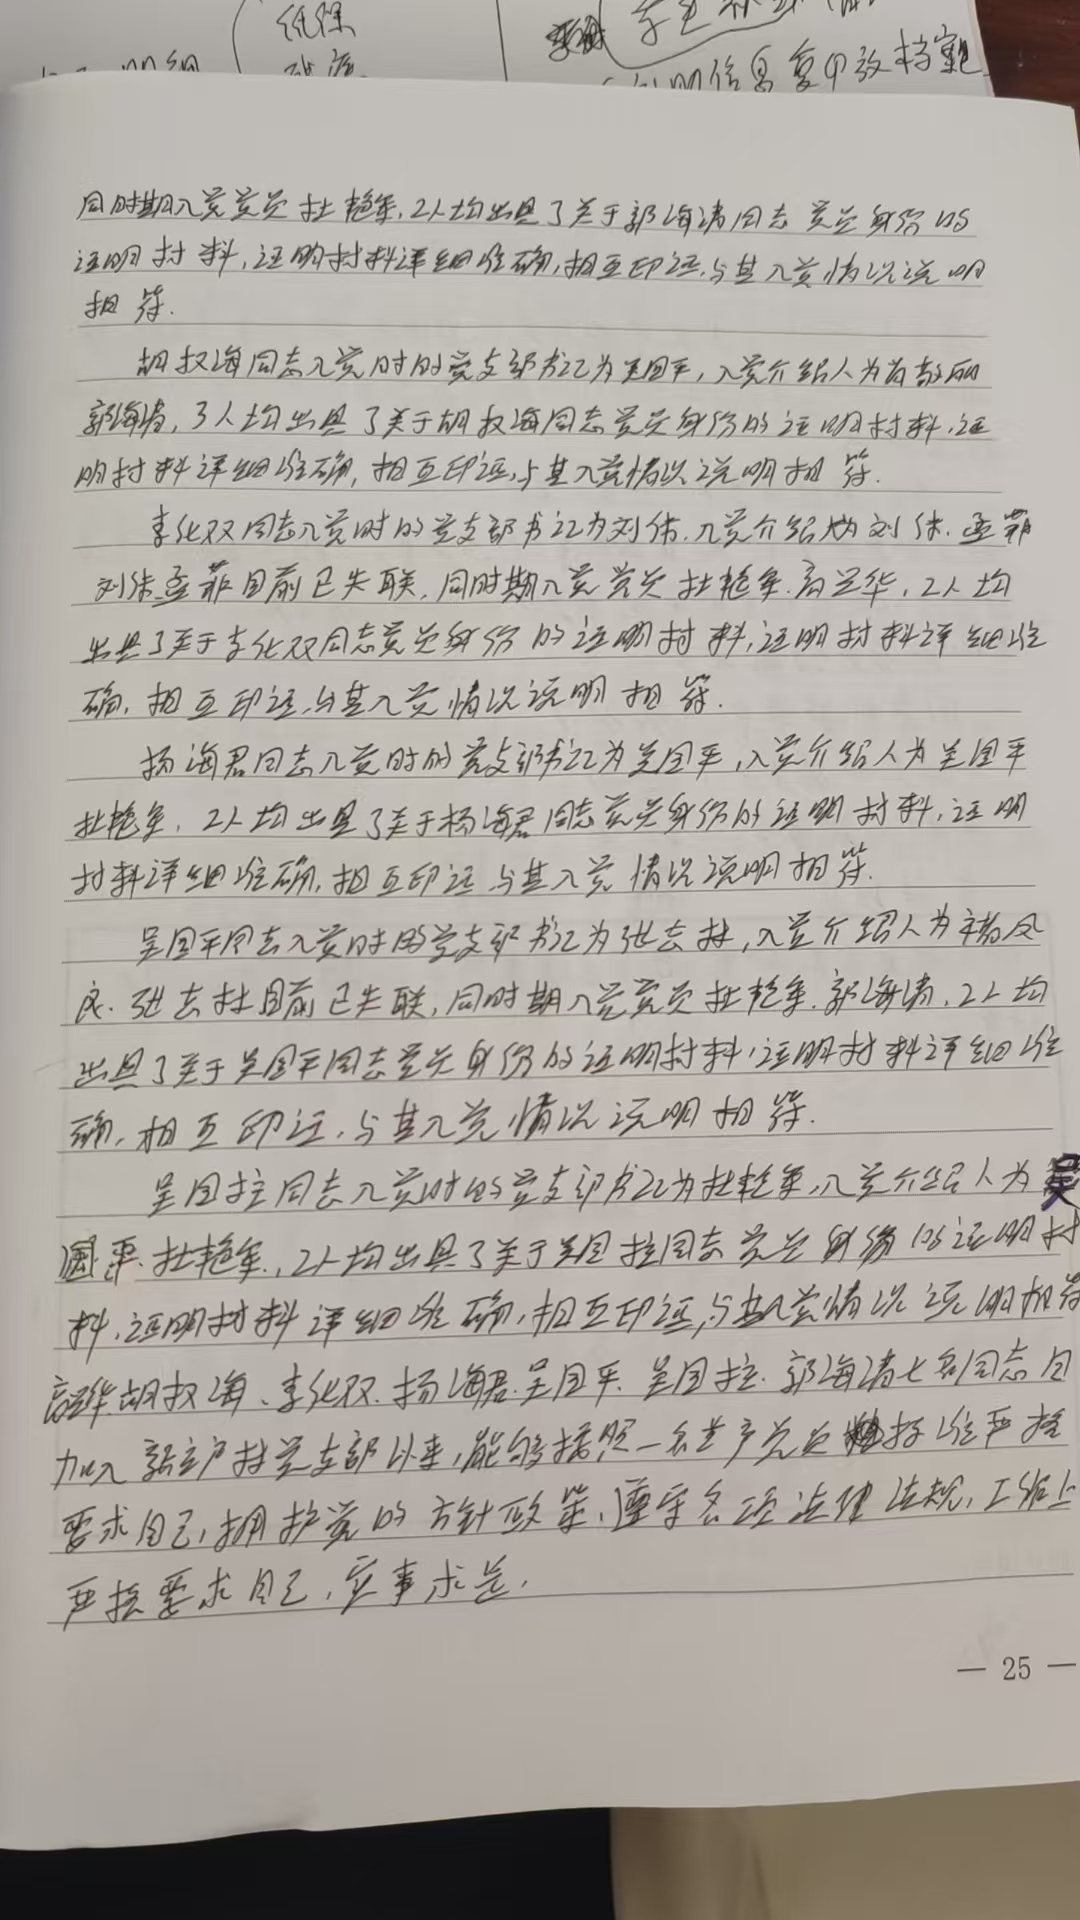 纸保
学生
明细
明信息复印放档案
同时期入党党员杜艳军,2人均出具了关于郭海清同志党员身份的
证明材料,证明材料详细准确,相互印证,与其入党情况说明
相符.
胡权海同志入党时的党支部书记为吴国平,入党介绍人为
郭海清,3人均出具了关于胡权海同志党员身份的证明材料.证
明材料详细准确,相互印证,与其入党情况说明相符.
李化双同志入党时的党支部书记为刘伟.入党介绍人为刘伟.孟菲
刘伟孟菲目前已失联,同时期入党党员杜艳军.高兴华,2人均
出具了关于李化双同志党员身份的证明材料,证明材料详细准
确,相互印证,与其入党情况说明相符.
杨海君同志入党时的党支部书记为吴国平,入党介绍人为吴国平
杜艳军,2人均出具了关于杨海君同志党员身份的证明材料,证明
材料详细准确,相互印证,与其入党情况说明相符.
吴国平同志入党时的党支部书记为张去杜,入党介绍人为凤
良.张去杜目前已失联,同时期入党党员杜艳军.郭海清,2人均
出具了关于吴国平同志党员身份的证明材料,证明材料详细准
确,相互印证,与其入党情况说明相符.
吴国拉同志入党时的党支部书记为杜艳军,入党介绍人为吴
国平.杜艳军.,2人均出具了关于吴国拉同志党员身份的证明材
料,证明材料详细准确,相互印证,与其入党情况说明相符
高兴华.胡权海、李化双.杨海君.吴国平.吴国拉.郭海清七名同志自
加入郭立户村党支部以来,能够按照一名共产党员标准严格
要求自己,拥护党的方针政策,遵守各项法律法规,工作上
严格要求自己,实事求是,
— 25 —